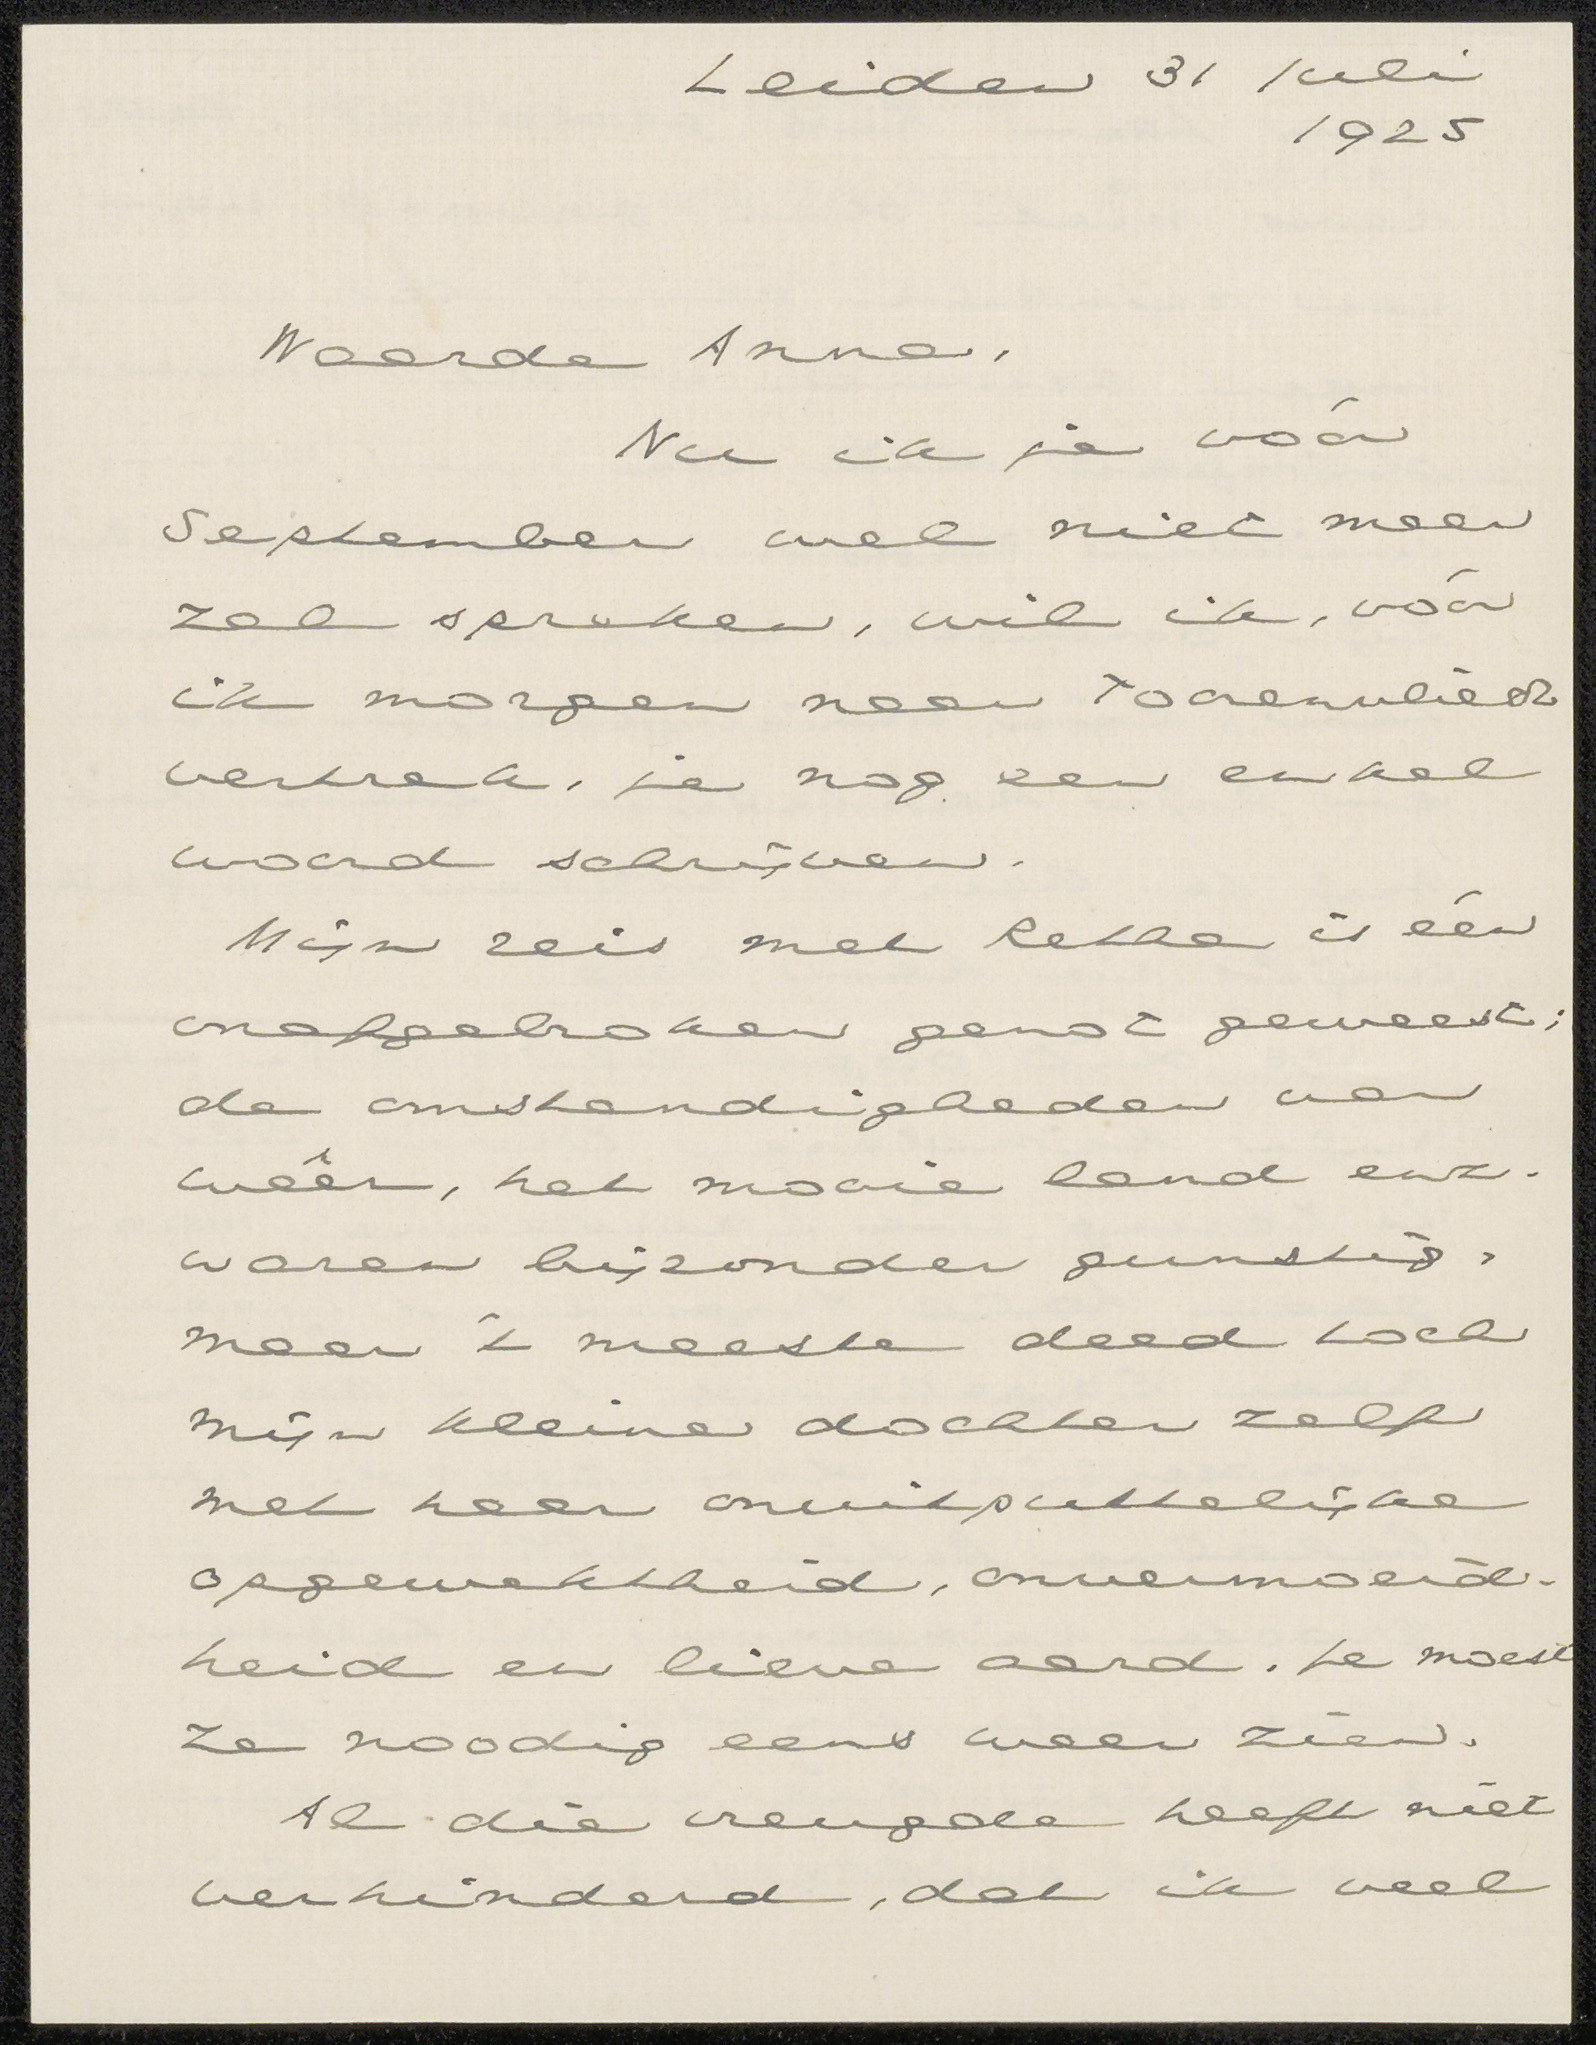 Leiden 31 Juli
1925
Waarde Anna,
Nu ik je vóór
September wel niet meer
zal spreken, wil ik, vóór
ik morgen naar Toorenvliedt
vertrek, je nog een enkel
woord schrijven.
Mijn reis met Ketha is één
onafgebroken genot geweest;
de omstandigheden van
weêr, het mooie land enz.
waren bijzonder gunstig,
maar 't meeste deed toch
mijn kleine dochter zelf
met haar onuitputtelijke
opgewektheid, onvermoeid-
heid en lieve aard. Je moest
ze noodig eens weer zien.
Al die vreugde heeft niet
verhinderd, dat ik veel